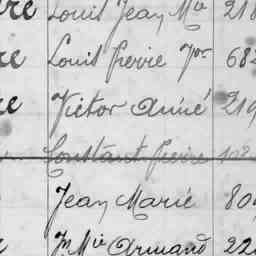 re Louis Jean Mie 218
re Louis Pierre Jn 682
re Victor Aimé 219
Constant Pierre
Jean Marie 80
Jn Mie Armand 22